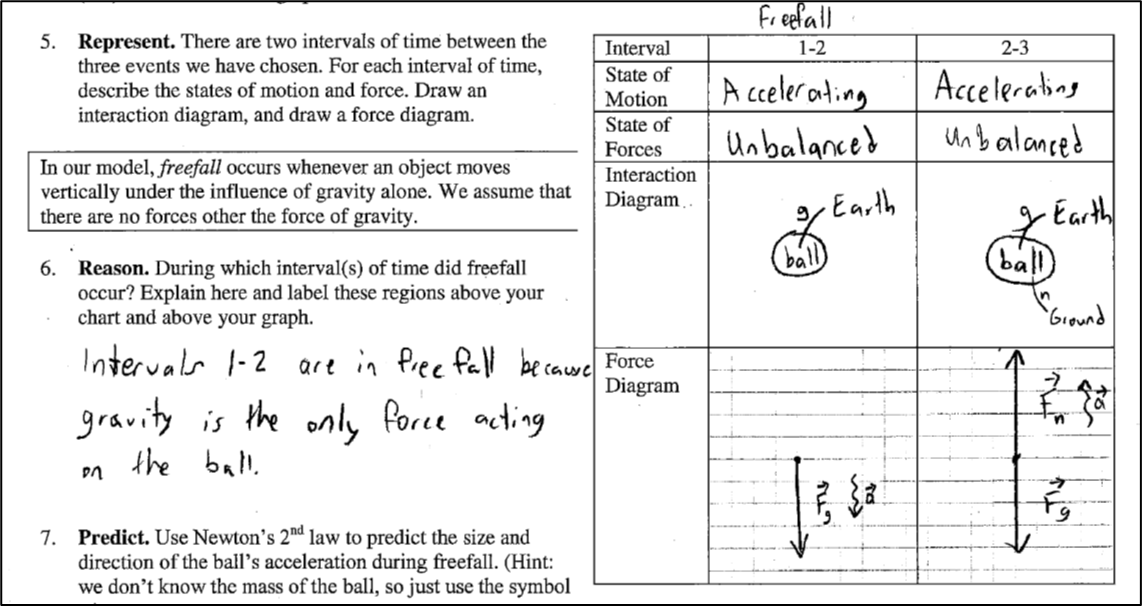 5. Represent. There are two intervals of time between the
three events we have chosen. For each interval of time,
describe the states of motion and force. Draw an
interaction diagram, and draw a force diagram.
In our model, freefall occurs whenever an object moves
vertically under the influence of gravity alone. We assume that
there are no forces other the force of gravity.
6. Reason. During which interval(s) of time did freefall
occur? Explain here and label these regions above your
chart and above your graph.
Intervals 1-2 are in free fall because
gravity is the only force acting
on the ball.
7. Predict. Use Newton's 2nd law to predict the size and
direction of the ball's acceleration during freefall. (Hint:
we don't know the mass of the ball, so just use the symbol
Freefall
Interval 1-2 2-3
State of
Motion Accelerating Accelerating
State of
Forces Unbalanced Unbalanced
Interaction
Diagram
g Earth
ball
g Earth
ball
n
Ground
Force
Diagram
F⃗g a⃗
F⃗n a⃗
F⃗g